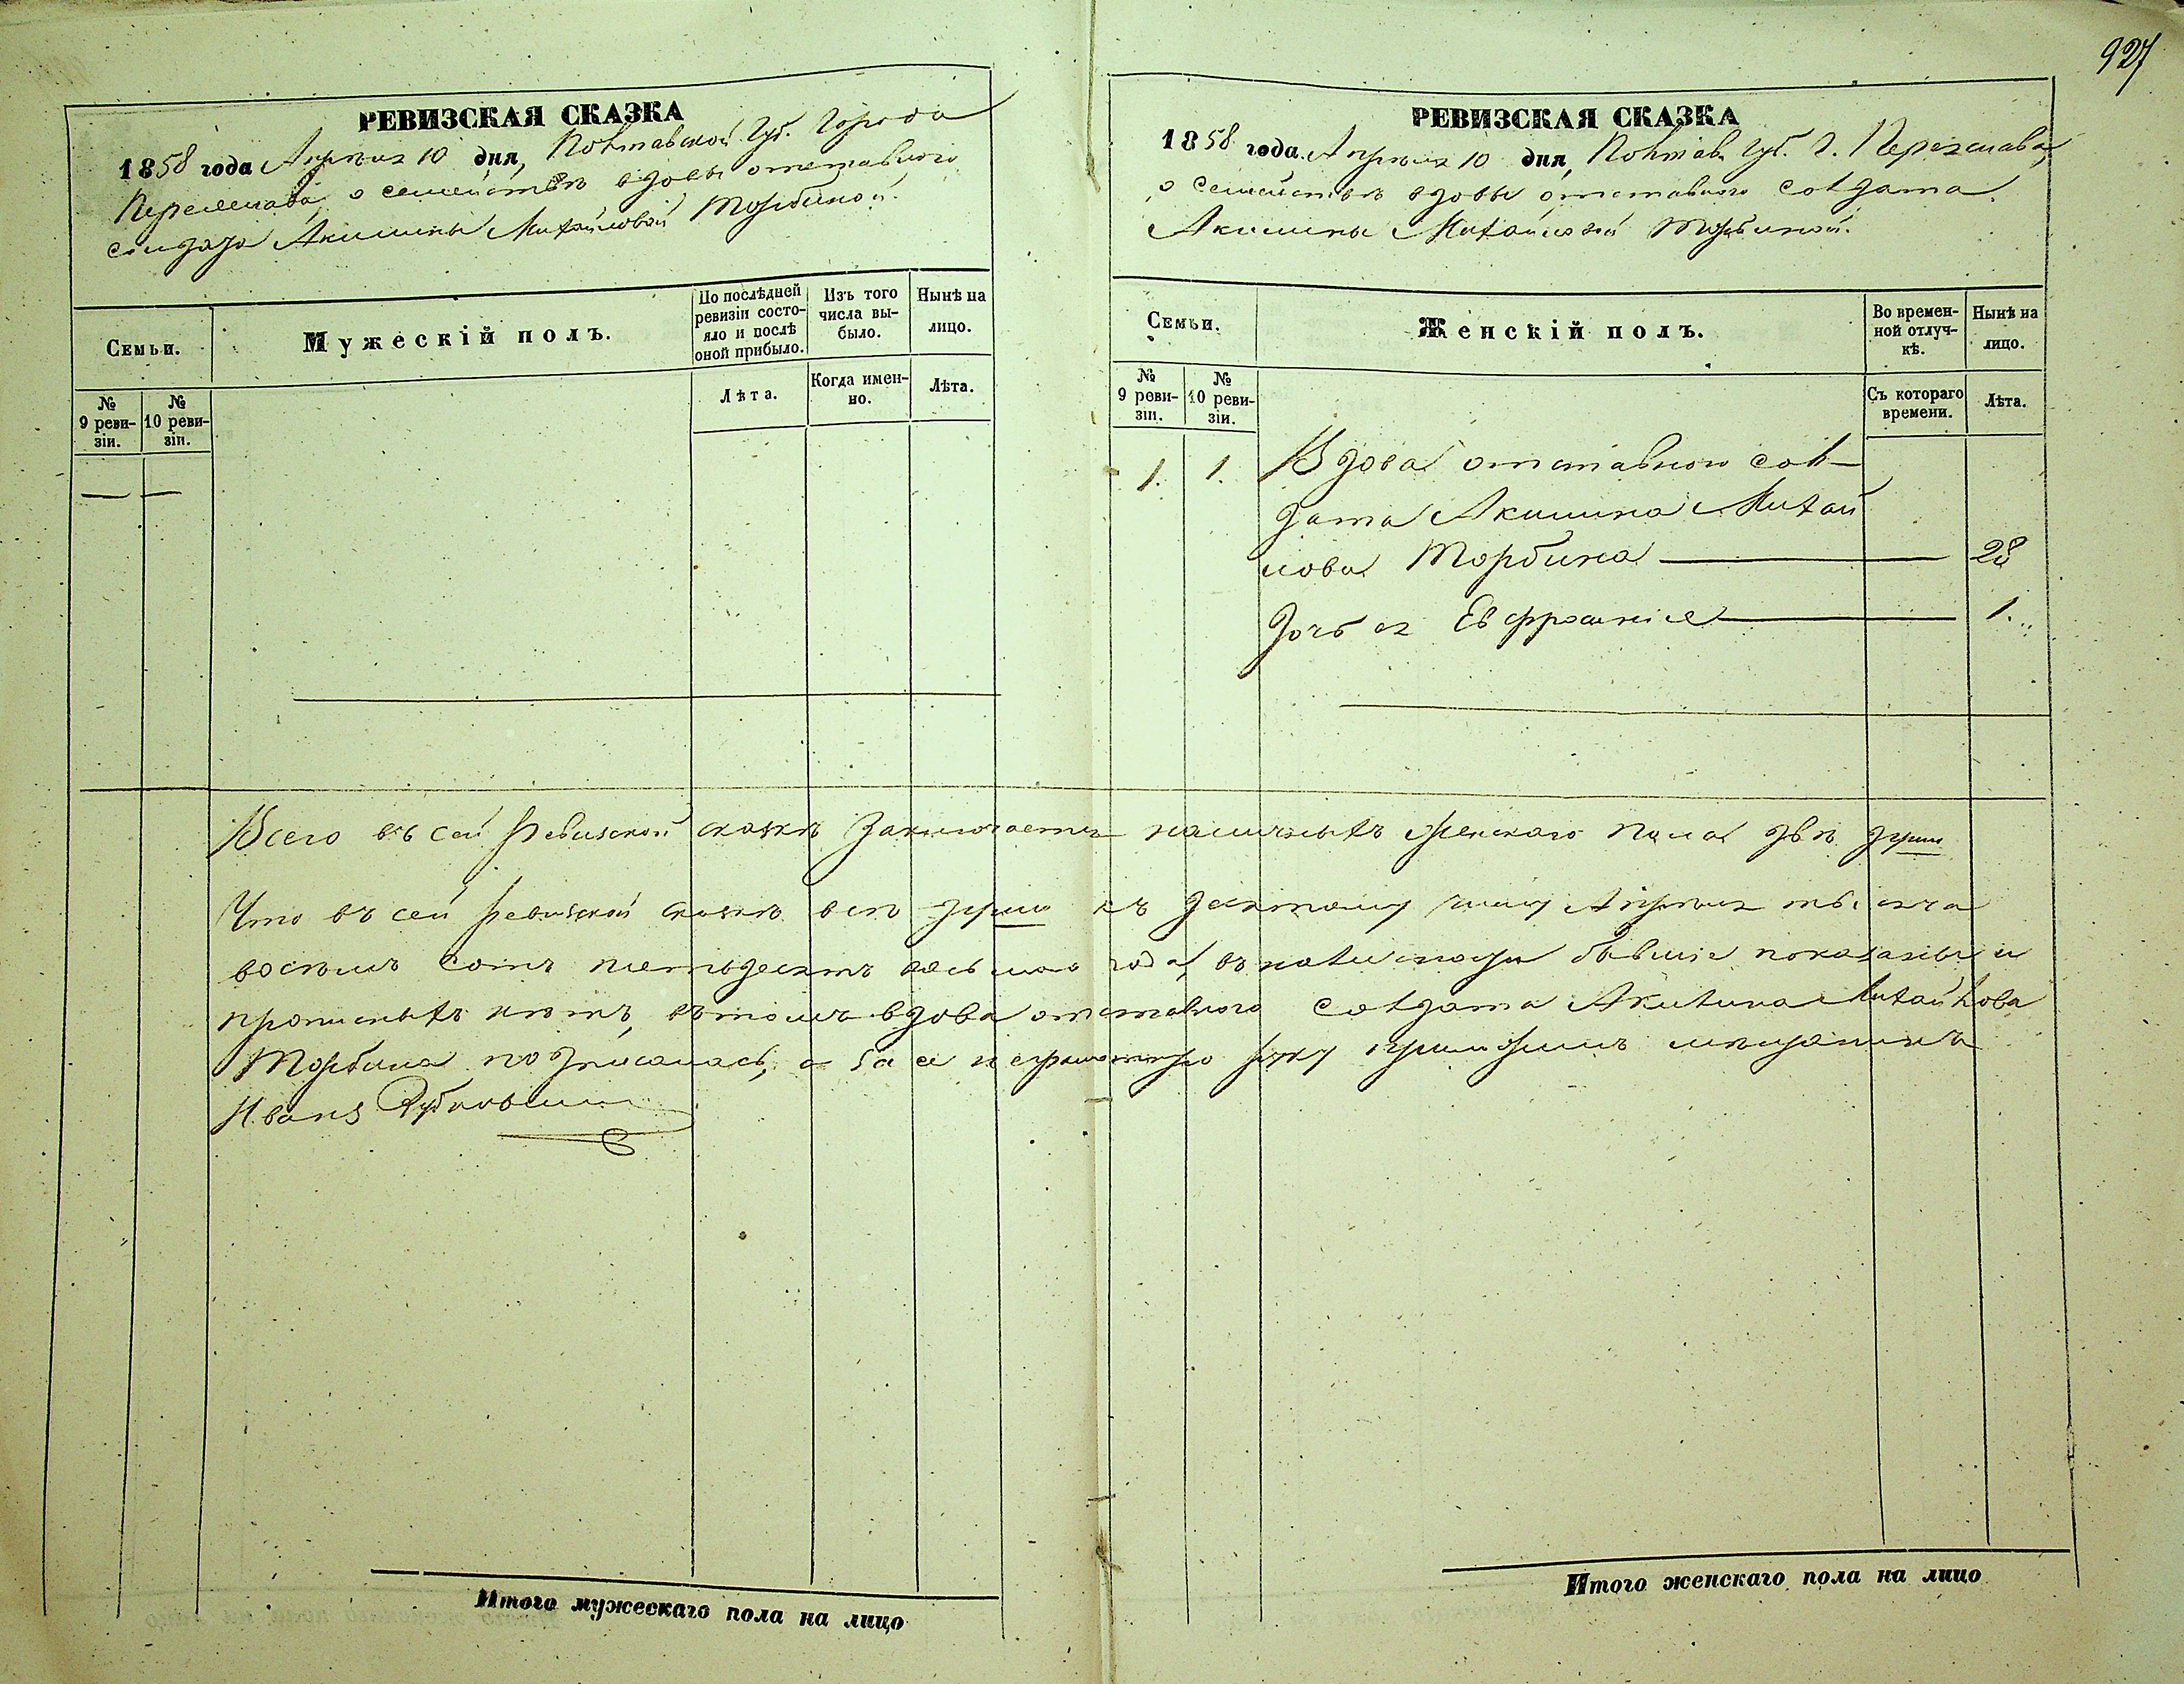 927
РЕВИЗСКАЯ СКАЗКА
1858 года Апрѣля 10 дня, Полтавской Губ. Города
Переяслава, о семействѣ вдовы отставного
солдата Акилины Михайловой Торбиной.
Семьи.
Мужескій полъ.
По послѣдней ревизіи состо-
яло и послѣ оной прибыло.
Изъ того числа вы-
было.
Нынѣ на лицо.
№ 9 реви-
зіи.
№ 10 реви-
зіи.
Лѣта.
Когда имен-
но.
Лѣта.
— —
РЕВИЗСКАЯ СКАЗКА
1858 года Апрѣля 10 дня, Полтав. Губ. Г. Переяслава,
о семействѣ вдовы отставного солдата
Акилины Михайловой Торбиной.
Семьи.
Женскій полъ.
Во времен-
ной отлуч-
кѣ.
Нынѣ на лицо.
№ 9 реви-
зіи.
№ 10 реви-
зіи.
Съ котораго времени.
Лѣта.
1. 1. Вдова отставного сол-
дата Акилина Михай
лова Торбина — 28
Дочь ея Евфросинія — 1.
Всего въ сей Ревизской сказкѣ заключается наличныхъ женскаго пола двѣ души
Что въ сей Ревизской сказкѣ всѣ души къ десятому числу Апрѣля тысяча
восемь сотъ пятьдесятъ восьмаго года, въ наличности бывшіе показаны и
прописныхъ нѣтъ, въ томъ вдова отставного солдата Акилина Михайлова
Торбина подписалась, а за ея неграмотную руку приложилъ мѣщанинъ
Иванъ
Итого мужескаго пола на лицо
Итого женскаго пола на лицо